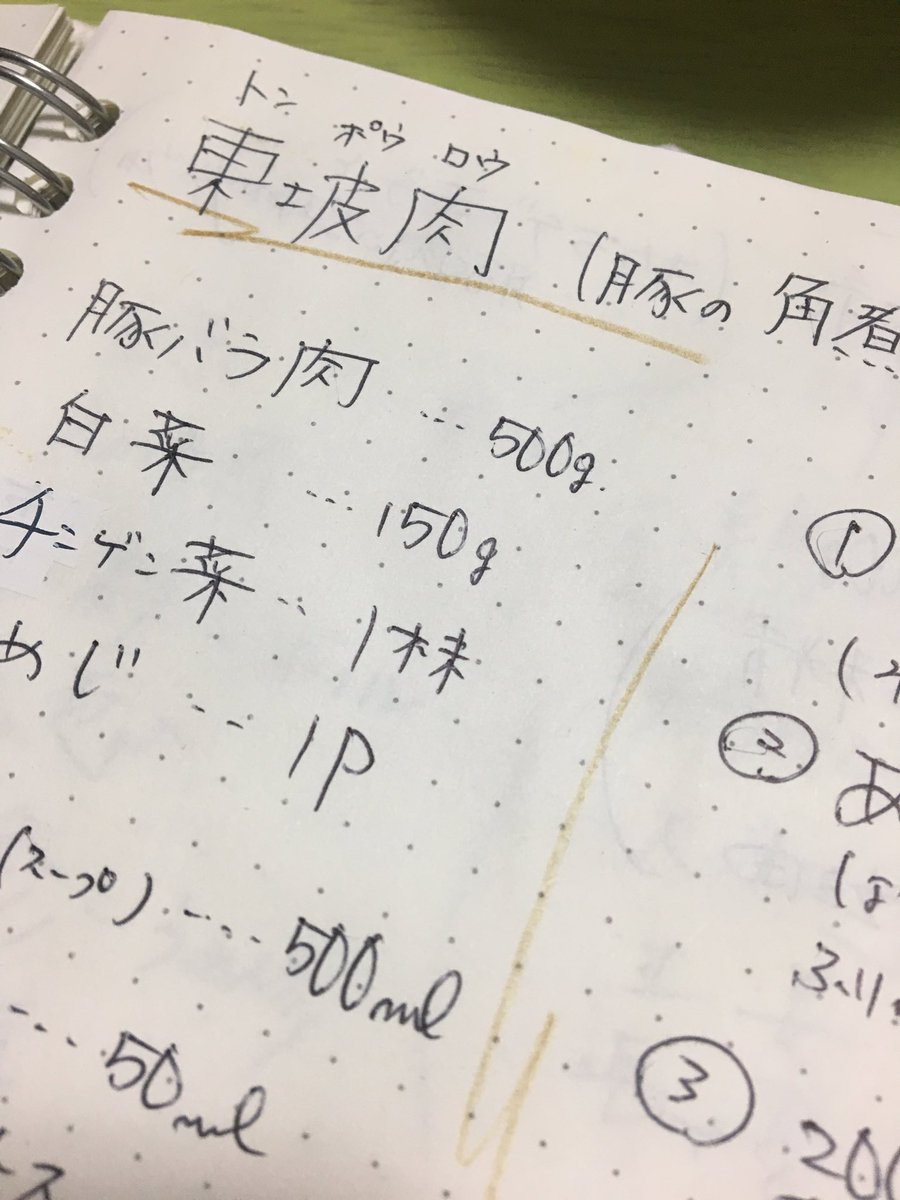 トン ポウ ロウ
東坡肉 (豚の角煮
豚バラ肉 … 500g
白菜 … 150g
チンゲン菜 … 1株
めじ … 1P
(スープ) … 500ml
… 50ml
①
②
あ
③
200